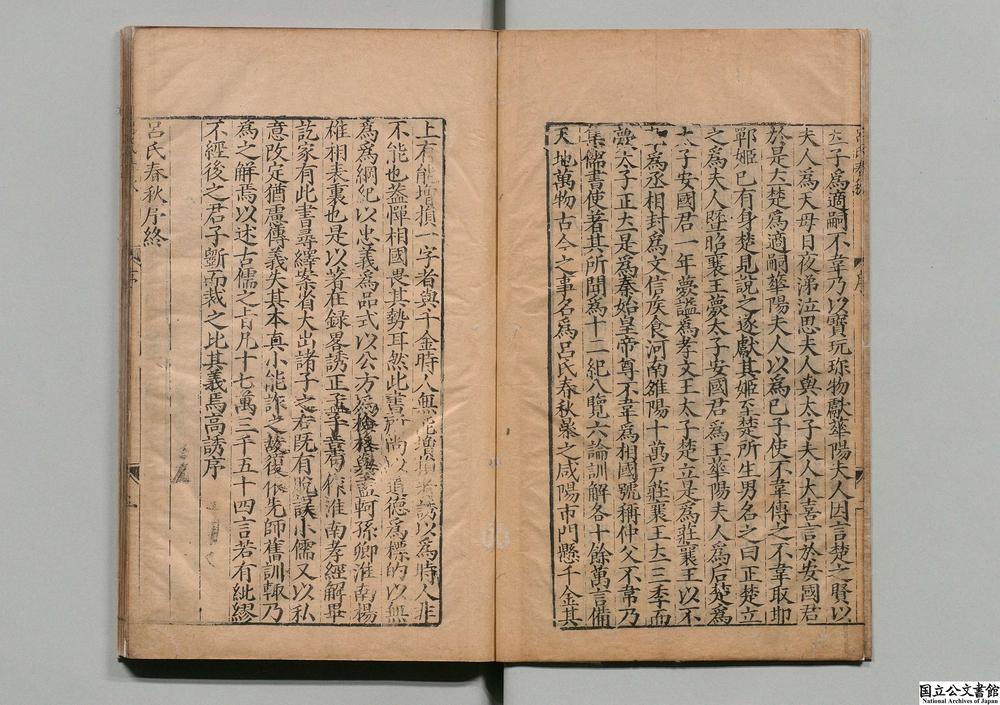 太子爲適嗣不韋乃以寶玩珍物獻華陽夫人因言楚之賢以
夫人爲天母日夜涕泣思夫人與太子夫人大喜言於安國君
於是立楚爲適嗣華陽夫人以爲已子使不韋傅之不韋取邯
鄲姬已有身楚見說之遂獻其姬至楚所生男名之曰正楚立
之爲夫人暨昭襄王薨太子安國君爲王華陽夫人爲后楚爲
太子安國君一年薨謚爲孝文王太子楚立是爲莊襄王以不
韋爲丞相封爲文信矦食河南雒陽十萬戶莊襄王大三季而
薨太子正大是爲秦始皇帝尊不韋爲相國號稱仲父不韋乃
集儒書使者其所聞爲十二紀八覽六論訓解各十餘萬言備
天地萬物古今之事名爲呂氏春秋㬥之咸陽市門懸千金其
上有能增損一字者與千金時人無能增損者誘以爲時人非
不能也葢憚相國畏其勢耳然此書所尚以道德爲標的以無
爲爲綱紀以忠義爲品式以公方爲檢格與孟軻孫卿淮南楊
雄相表裏也是以著在録畧誘正孟子章句作淮南孝經解畢
訖家有此書尋繹案省大出諸子之右既有脫誤小儒又以私
意改定猶慮傳義失其本真小能詐之故復依先師舊訓輒乃
爲之解焉以述古儒之旨凡十七萬三千五十四言若有紕繆
不經後之君子斷而裁之比其義焉高誘序
呂氏春秋序終
国立公文書館
National Archives of Japan